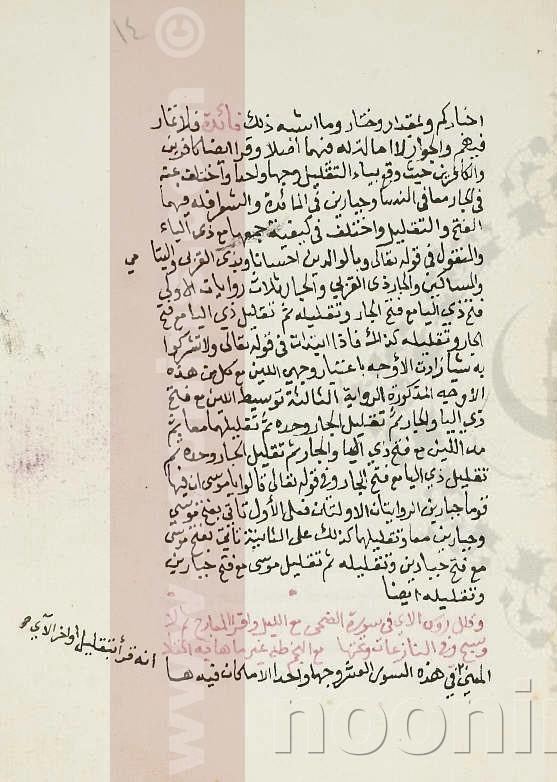 ١٤
اخباركم وبمقدار وختار وما اشبه ذلك فائدة فلا تمار
فيهم والجوار لا امالة له فيهما أصلا وقرأ أيضا كافرين
والكافرين حيث وقع بياء التقليل وجها واحدا واختلف عنه
في الجار معا في النسا وجبارين في المائدة والشعرا فله فيهما
الفتح والتقليل واختلف في كيفية جمعها مع ذي الياء
والمنقول في قوله تعالى وبالوالدين احسانا وبذي القربى واليتامى
والمساكين والجار ذي القربى والجار ثلاث روايات الأولى
فتح ذي اليا مع فتح الجار وتقليله ثم تقليل ذي اليا مع فتح
الجار وتقليله كذلك فاذا ابتدات في قوله تعالى ولا تشركوا
به شيئا زادت الأوجه باعتبار وجهي اللين مع كل من هذه
الأوجه المذكورة الرواية الثالثة توسيط اللين مع فتح
ذي اليا والجار ثم تقليل الجار وحده ثم تقليلهما معا ثم
مد اللين مع فتح ذي اليا والجار ثم تقليل الجار وحده ثم
تقليل ذي اليا مع فتح الجار وفي قوله تعالى قالوا يا موسى ان فيها
قوما جبارين الروايتان الاولتان فعلى الأول تأتي بفتح موسى
وجبارين معا وتقليلها كذلك على الثانية تأتي بفتح موسى
مع فتح جبارين وتقليله ثم تقليل موسى مع فتح جبارين
وتقليله ايضا
وقلل رؤس الاي في سورة الضحى مع الليل واقرأ المعارج ثم لا
وسبح وفي النازعات ونحوها مع النجم طه غير ما هافيه
المعنى في هذه السور العشر وجها واحدا لامكان فيه ها
أنه قرأ بتقليل أواخر الآي
www.
©
noonl